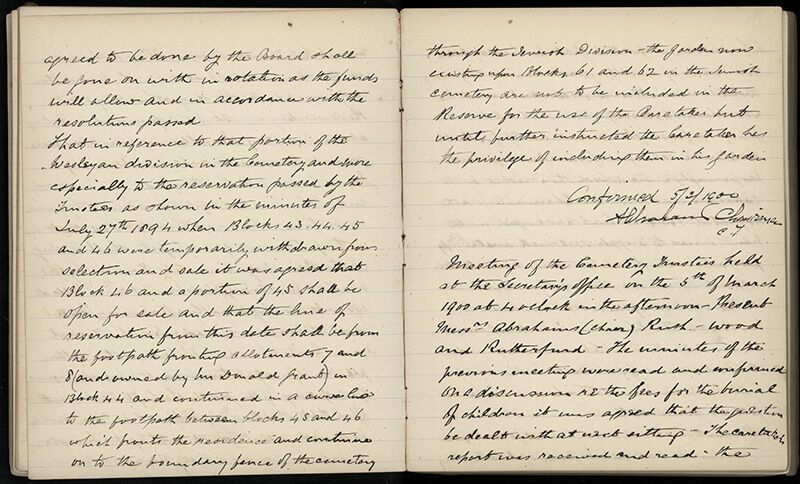 agreed to be done by the Board shall
be gone on with in rotation as the funds
will allow and in accordance with the
resolutions passed
That in reference to that portion of the
Wesleyan division in the Cemetery and more
especially to the reservation passed by the
Trustees as shown in the minutes of
July 27th 1894 when Blocks 43. 44. 45
and 46 were temporarily withdrawn from
selection and sale it was agreed that
Block 46 and a portion of 45 shall be
open for sale and that the line of
reservation from this date shall be from
the footpath fronting allotments 7 and
8 (and owned by Mr Donald Grant) in
Block 44 and continued in a curve line
to the footpath between blocks 45 and 46
which fronts the residence and continue
on to the boundary fence of the cemetery
through the Jewish Division – the garden now
existing upon Blocks 61 and 62 in the Jewish
cemetery are not to be included in the
Reserve for the use of the Caretaker but
until further instructed the Caretaker has
the privilege of including them in his garden
Confirmed 5/3/1900
Abrahams Chairman
C T
Meeting of the Cemetery Trustees held
at the Secretarys office on the 5th of March
1900 at 4 oclock in the afternoon – Present
Messrs Abrahams (chair) Rush – Wood
and Rutherfurd – The minutes of the
previous meeting were read and confirmed
On a discussion re the fees for the burial
of children it was agreed that the question
be dealt with at next sitting – The caretakers
report was received and read – the